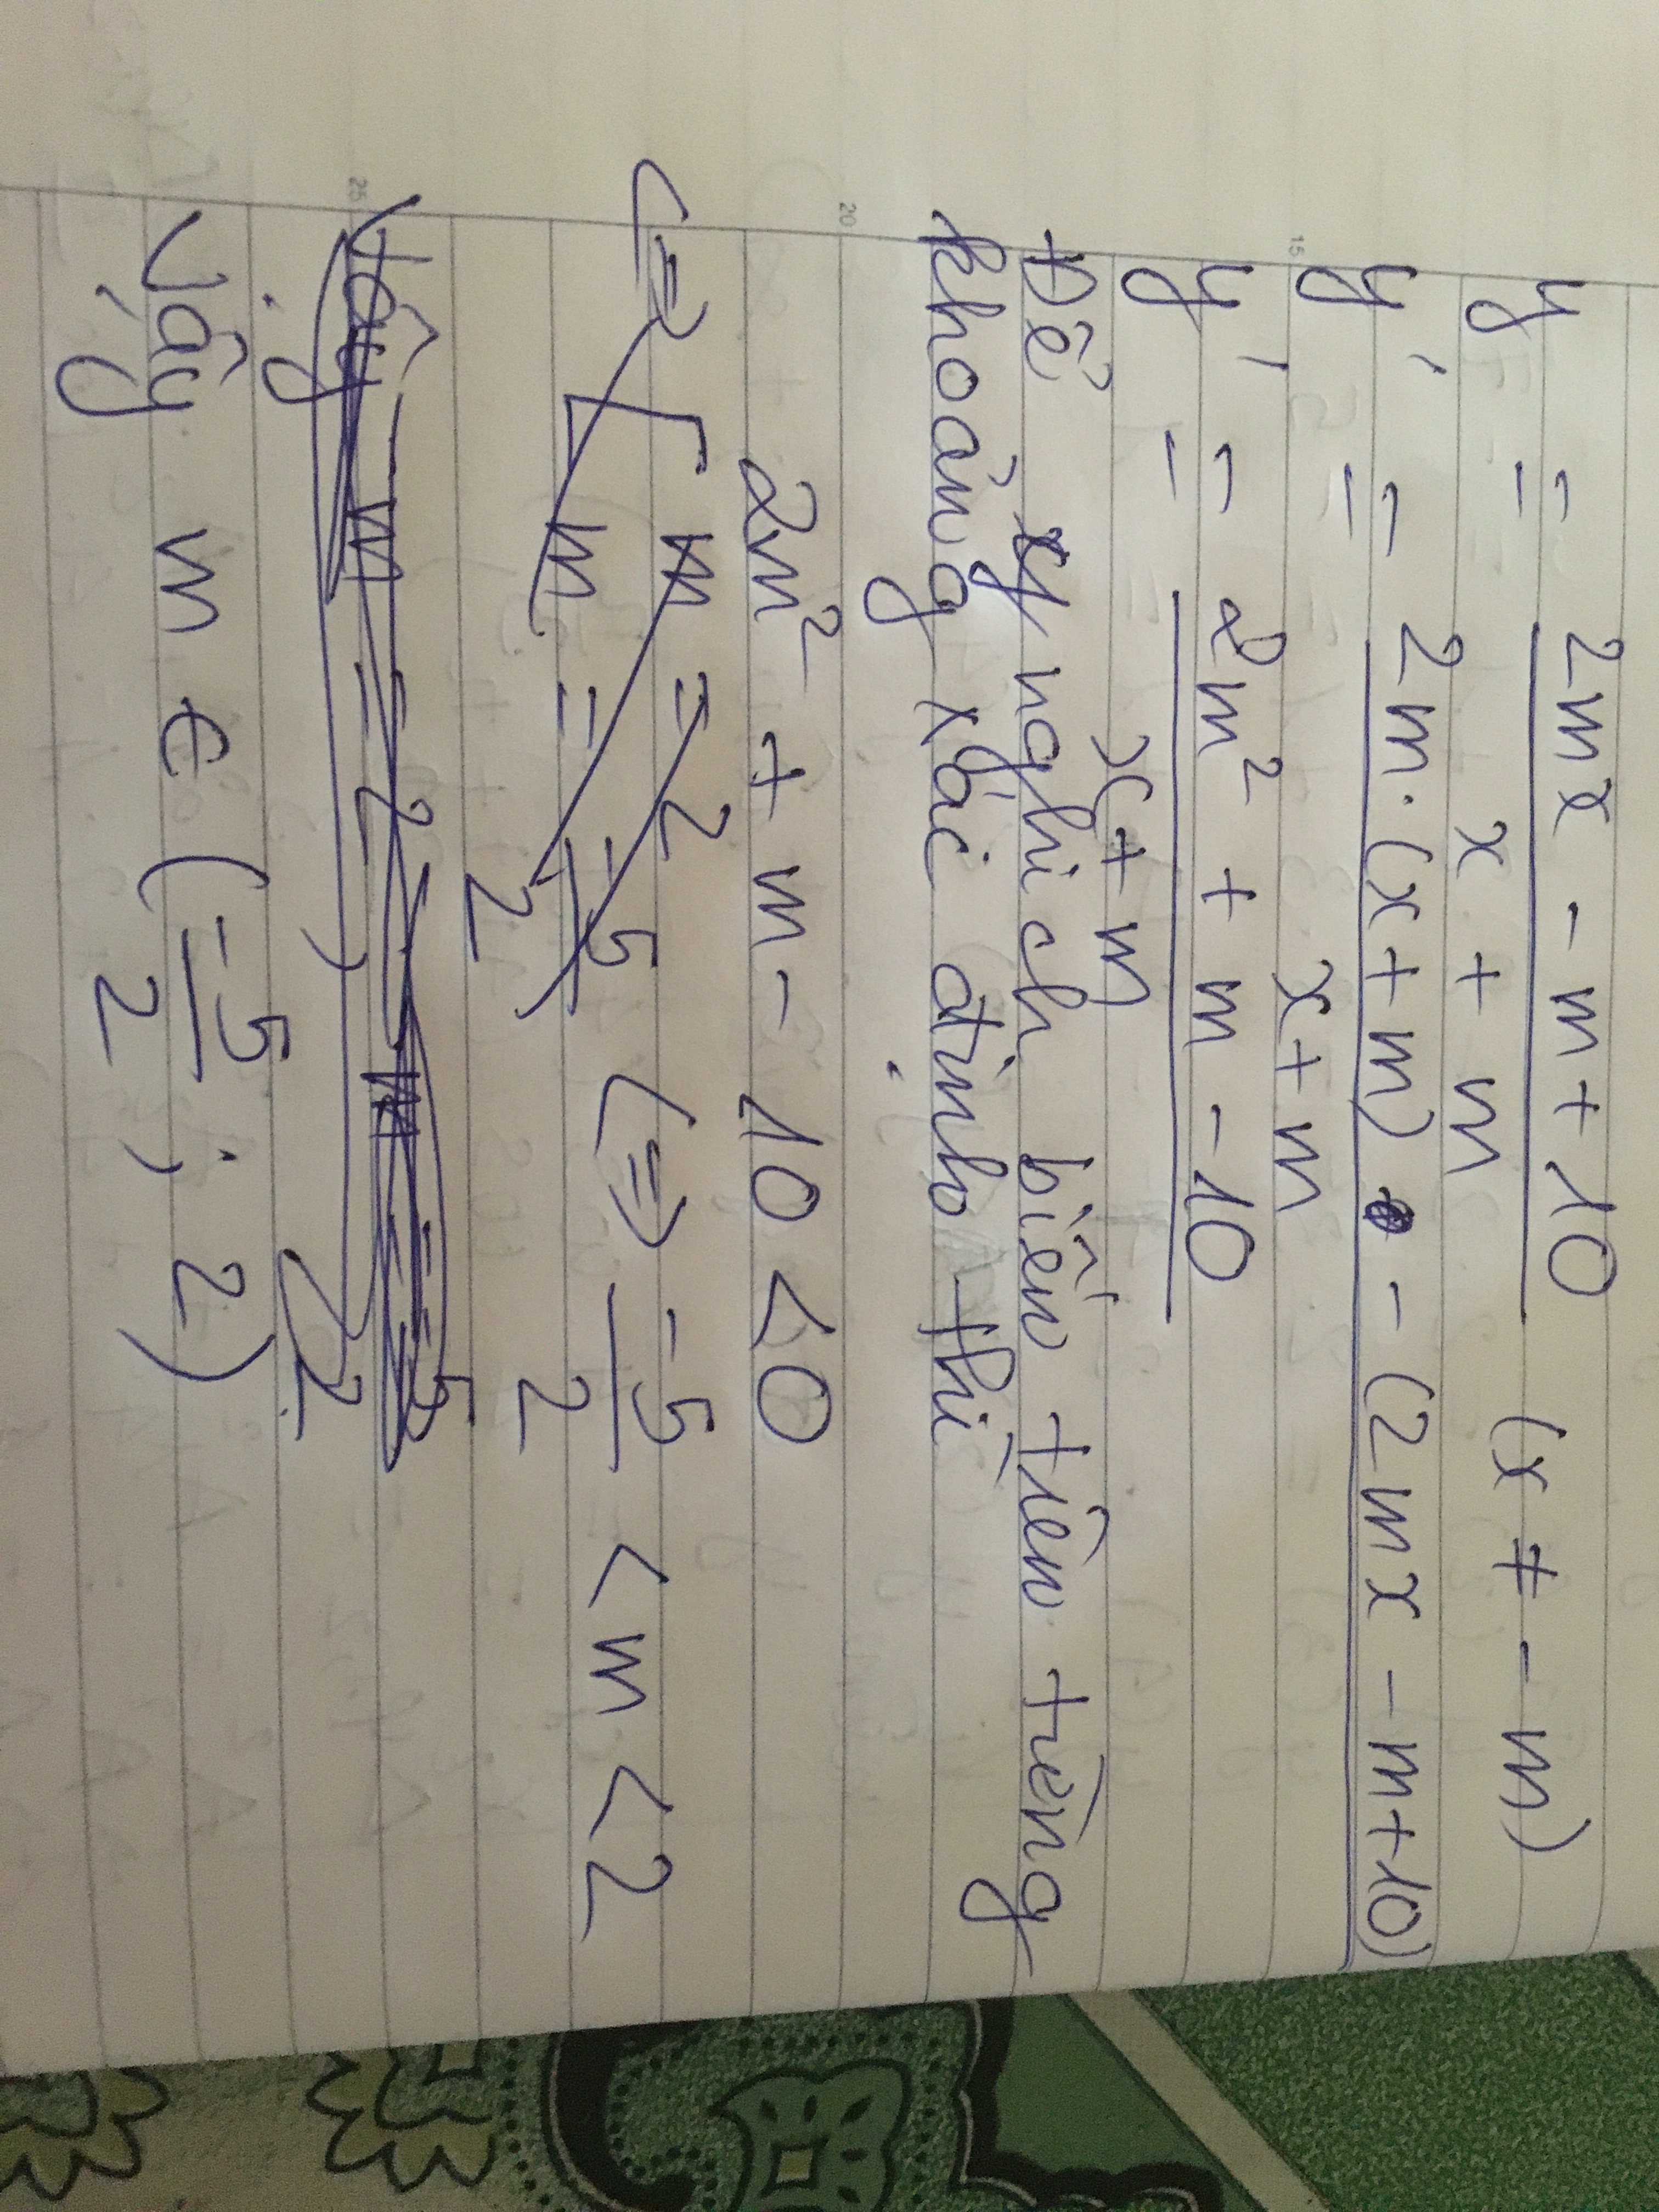 y = (2mx - m + 10)/(x + m) (x ≠ - m)
y' = (2m.(x + m) - (2mx - m + 10))/(x + m)
y' = (2m² + m - 10)/(x + m)
Để y nghịch biến trên từng
khoảng xác định thì
2m² + m - 10 < 0
<=> [ m = 2
m = -5/2 <=> -5/2 < m < 2
Vậy m ∈ (-5/2 ; 2)
15
20
25